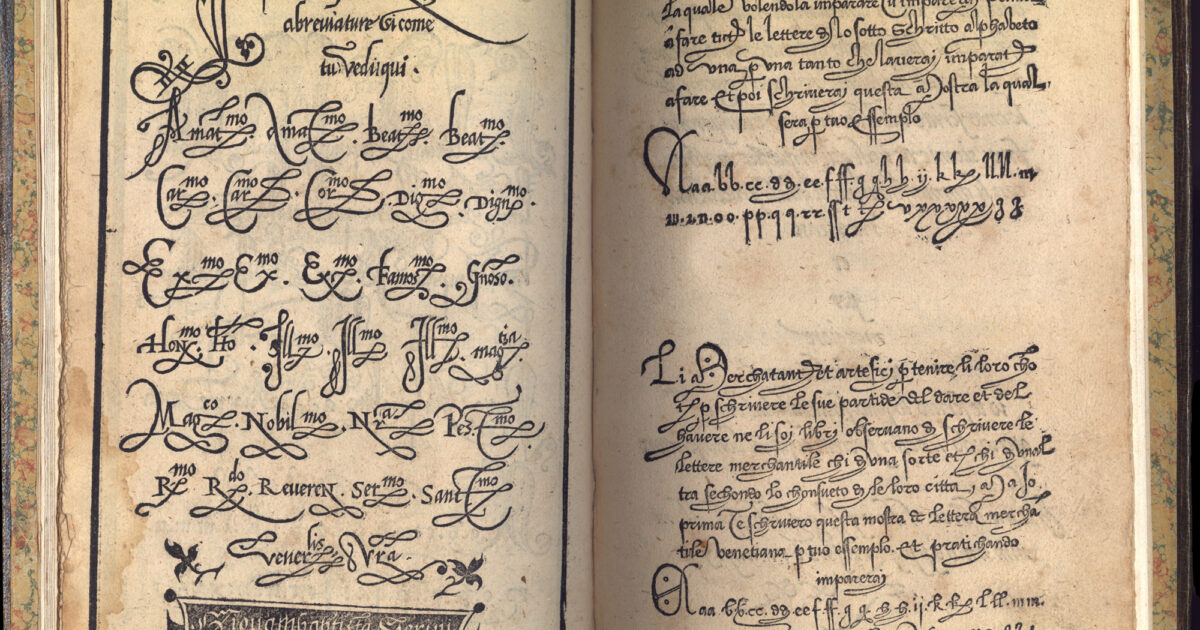 abreviature Si come
tu vedi qui.
Amat.mo Amat.mo Beat.mo Beat.mo
Car.mo Car.mo Cor.mo Dig.mo Dign.mo
Ex.mo Ex.mo Ex.mo Famos.mo Gñoso.
Hon.mo Ho Ill.mo Ill.mo Ill.mo mag.tia
Mag.co Nobil.mo Nra
R.mo R.do Reveren. Ser.mo Sant.mo
Vener.lis Vra.
la quale volendola imparare
a fare le lettere lo sotto Schritto alphabeto
ad una p una tanto che laverai imparat
afare Et poi schriverai questa Mostra la qual
sera p tuo Essemplo
Aaa.bb.cc.dd.ee.ff.ff.g.g.h.h.ij.k.k.ll.ll.m
oo.pp.qq.rr.ss t t v x x x x x
Li Merchatanti et artefici p tenire li loro
p schrivere le sue partide del dare et del
havere ne li soi libri observano di schrivere le
lettere merchantile chi d una sorte et chi d unal
tra sechondo lo chonsueto de le loro citta, Ma Io
prima te schrivero questa mostra de lettera mercha
tile venetiana p tuo essemplo. et pratichando
imparerai
Aaa.bb.cc.dd.ee f.ff.g.g.h.h.ij.k.k.ll.mm.